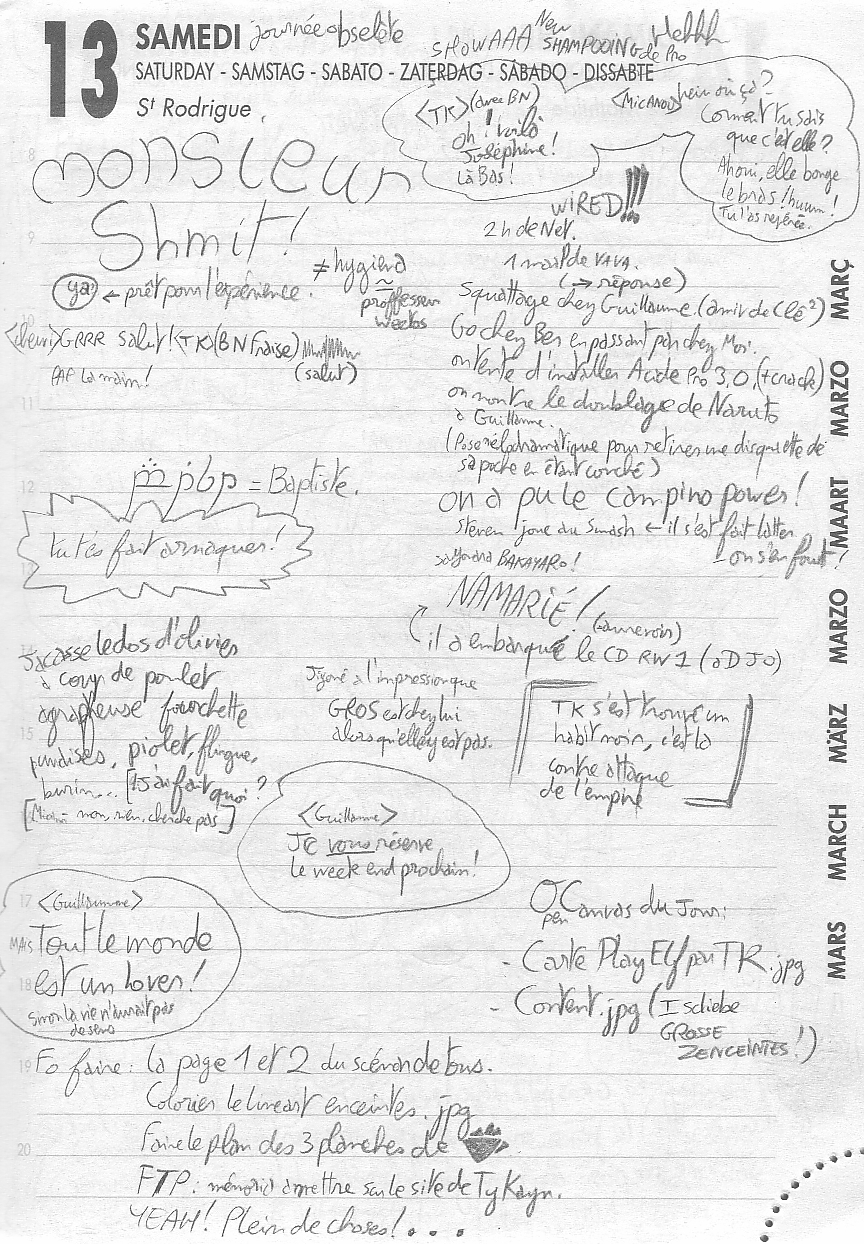 13 SAMEDI journée obselète
SHOWAAA New SHAMPOOING de Pro Hehhh
SATURDAY - SAMSTAG - SABATO - ZATERDAG - SÁBADO - DISSABTE
St Rodrigue
<TK> (avec BN)
Oh ! voilà
Joséphine !
Là Bas !
<MicAnou> hein où ça ?
Comment tu sais
que c'est elle ?
Ah oui, elle bouge
le bras ! huum !
Tu l'as repérée.
8
monsieur
9
Shmit !
ya ← prêt pour l'expérience.
≠ hygiena
≃
proffesseur
weetos
10
GRRR salut ! <TK> (BN Fraise)
(salut)
PAF La main !
11
WiRED !!!
2h de Net.
1 mail de VAVA.
(→ réponse)
Squattage chez Guillaume. (ami de Clé²)
Go chez Ben en passant par chez Moi.
on tente d'installer Acide Pro 3.0, (+crack)
on montre le doublage de Naruto
à Guillaume.
(Pose mélodramatique pour retirer une disquette de
sa poche en étant couché)
12
pbp = Baptiste.
on a pu le campino power !
Steven joue au Smash ← il s'est fait latter
- on s'en fout !
BAKAYARO !
13
tu t'és fait arnaquer !
NAMARIÉ ! (=aurevoir)
il a embarqué le CD RW 1 (à DJO)
14
Jacasse le dos d'olivier
à coup de poulet
agrapheuse fourchette
15
punaises, piolet, flingue,
burin... [J'ai fait quoi ?
non, rien, cherche pas]
a l'impression que
GROS est chez lui
alors qu'elle y est pas.
TK s'est trouvé un
habit noir, c'est la
contre attaque
de l'empire
<Guillaume>
Je vous réserve
le week end prochain !
17
<Guillaume>
MAIS Tout le monde
18
est un lover !
sinon la vie n'aurait pas
de sens
Open Canvas du Jour :
- Carte Play Elf par TK.jpg
- Content.jpg (
GROSSE
ZENCEINTES !)
19
Fo faire : la page 1 et 2 du scénar de bus.
Colorier le lineart enceintes.jpg
20
Faire le plan des 3 planches de
FTP : à mettre sur le site de TyKayn.
YEAH ! Plein de choses ! . . .
MARS MARCH MÄRZ MARZO MAART MARZO MARÇ